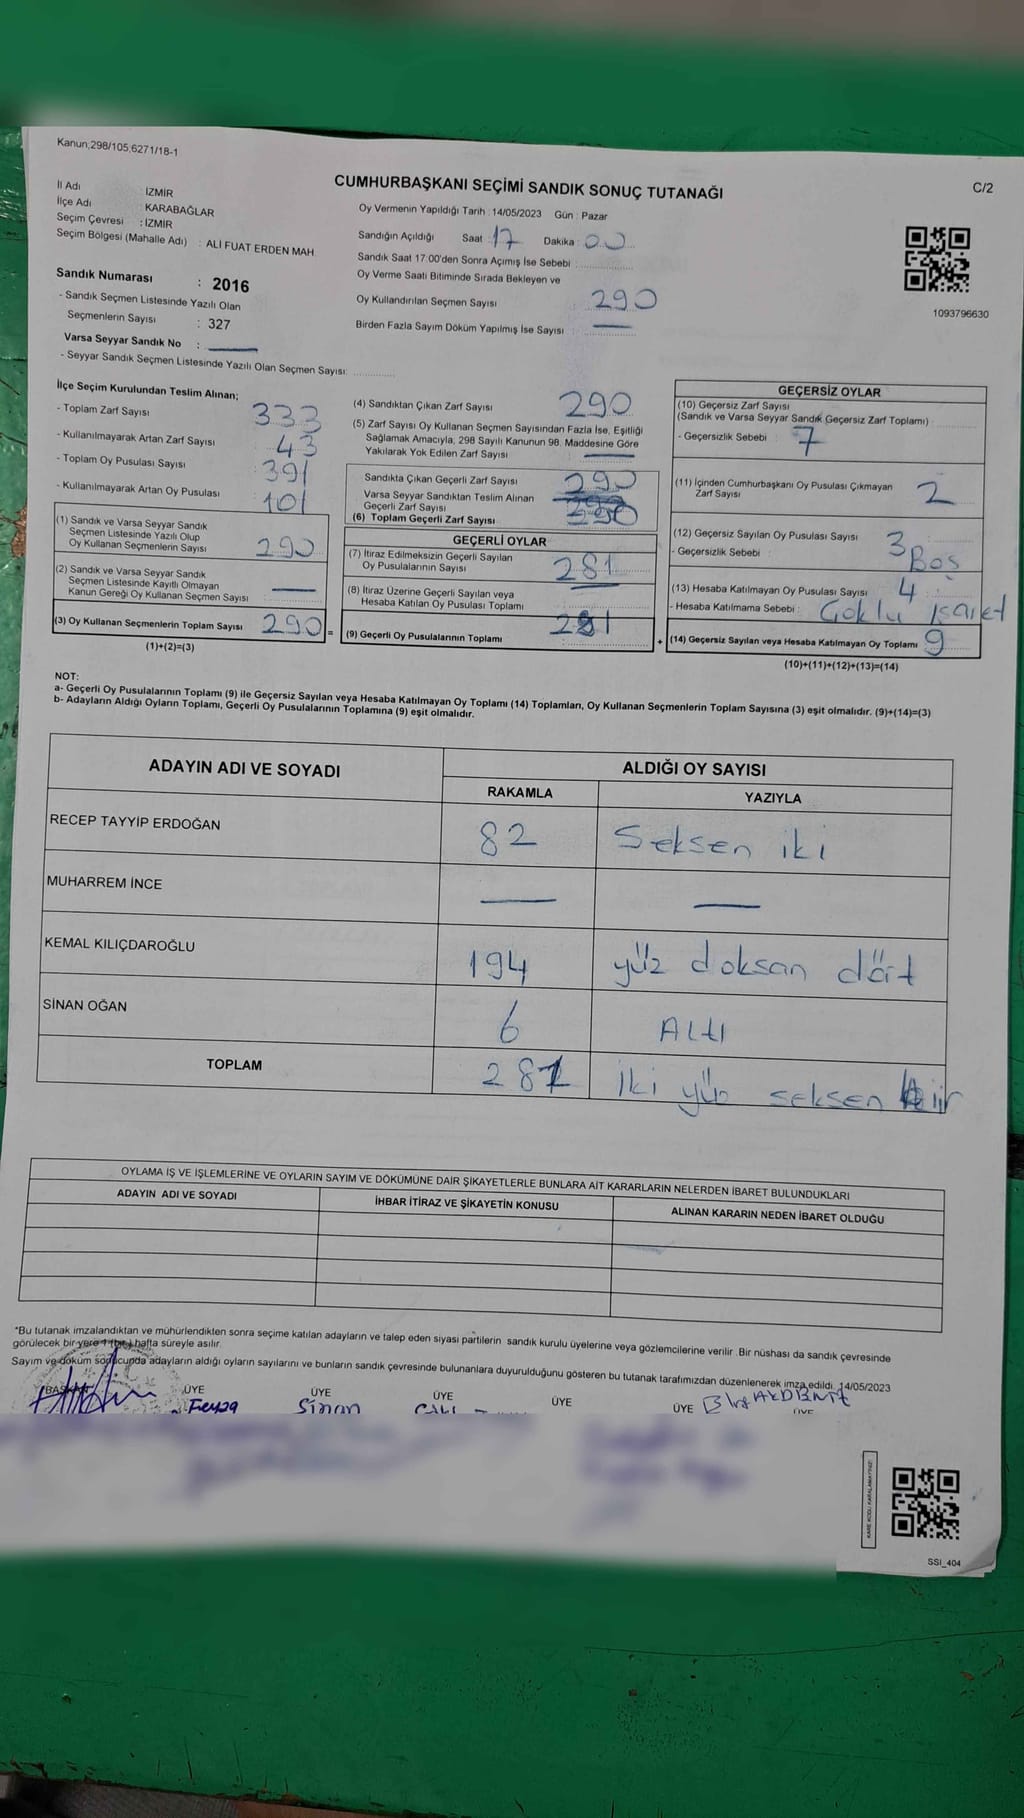 Kanun;298/105;6271/18-1
CUMHURBAŞKANI SEÇİMİ SANDIK SONUÇ TUTANAĞI
C/2
İl Adı : İZMİR
İlçe Adı : KARABAĞLAR
Seçim Çevresi : İZMİR
Seçim Bölgesi (Mahalle Adı) : ALİ FUAT ERDEN MAH.
Sandık Numarası : 2016
- Sandık Seçmen Listesinde Yazılı Olan
Seçmenlerin Sayısı : 327
Varsa Seyyar Sandık No :
- Seyyar Sandık Seçmen Listesinde Yazılı Olan Seçmen Sayısı:
Oy Vermenin Yapıldığı Tarih : 14/05/2023 Gün : Pazar
Sandığın Açıldığı Saat : 17 Dakika : 00
Sandık Saat 17:00'den Sonra Açımış İse Sebebi :
Oy Verme Saati Bitiminde Sırada Bekleyen ve
Oy Kullandırılan Seçmen Sayısı 290
Birden Fazla Sayım Döküm Yapılmış İse Sayısı
1093796630
İlçe Seçim Kurulundan Teslim Alınan;
- Toplam Zarf Sayısı : 333
- Kullanılmayarak Artan Zarf Sayısı : 43
- Toplam Oy Pusulası Sayısı : 391
- Kullanılmayarak Artan Oy Pusulası : 101
(1) Sandık ve Varsa Seyyar Sandık
Seçmen Listesinde Yazılı Olup
Oy Kullanan Seçmenlerin Sayısı : 290
(2) Sandık ve Varsa Seyyar Sandık
Seçmen Listesinde Kayıtlı Olmayan
Kanun Gereği Oy Kullanan Seçmen Sayısı
(3) Oy Kullanan Seçmenlerin Toplam Sayısı 290 =
(1)+(2)=(3)
(4) Sandıktan Çıkan Zarf Sayısı 290
(5) Zarf Sayısı Oy Kullanan Seçmen Sayısından Fazla İse, Eşitliği
Sağlamak Amacıyla, 298 Sayılı Kanunun 98. Maddesine Göre
Yakılarak Yok Edilen Zarf Sayısı
Sandıkta Çıkan Geçerli Zarf Sayısı 290
Varsa Seyyar Sandıktan Teslim Alınan
Geçerli Zarf Sayısı
(6) Toplam Geçerli Zarf Sayısı
GEÇERLİ OYLAR
(7) İtiraz Edilmeksizin Geçerli Sayılan
Oy Pusulalarının Sayısı 281
(8) İtiraz Üzerine Geçerli Sayılan veya
Hesaba Katılan Oy Pusulası Toplamı
(9) Geçerli Oy Pusulalarının Toplamı 281 +
GEÇERSİZ OYLAR
(10) Geçersiz Zarf Sayısı
(Sandık ve Varsa Seyyar Sandık Geçersiz Zarf Toplamı)
- Geçersizlik Sebebi : 7
(11) İçinden Cumhurbaşkanı Oy Pusulası Çıkmayan
Zarf Sayısı 2
(12) Geçersiz Sayılan Oy Pusulası Sayısı : 3
- Geçersizlik Sebebi : Boş
(13) Hesaba Katılmayan Oy Pusulası Sayısı : 4
- Hesaba Katılmama Sebebi : Çoklu işaret
(14) Geçersiz Sayılan veya Hesaba Katılmayan Oy Toplamı 9
(10)+(11)+(12)+(13)=(14)
NOT:
a- Geçerli Oy Pusulalarının Toplamı (9) ile Geçersiz Sayılan veya Hesaba Katılmayan Oy Toplamı (14) Toplamları, Oy Kullanan Seçmenlerin Toplam Sayısına (3) eşit olmalıdır. (9)+(14)=(3)
b- Adayların Aldığı Oyların Toplamı, Geçerli Oy Pusulalarının Toplamına (9) eşit olmalıdır.
ADAYIN ADI VE SOYADI ALDIĞI OY SAYISI
RAKAMLA YAZIYLA
RECEP TAYYİP ERDOĞAN 82 Seksen iki
MUHARREM İNCE
KEMAL KILIÇDAROĞLU 194 yüz doksan dört
SİNAN OĞAN 6 Altı
TOPLAM 281 iki yüz seksen bir
OYLAMA İŞ VE İŞLEMLERİNE VE OYLARIN SAYIM VE DÖKÜMÜNE DAİR ŞİKAYETLERLE BUNLARA AİT KARARLARIN NELERDEN İBARET BULUNDUKLARI
ADAYIN ADI VE SOYADI İHBAR İTİRAZ VE ŞİKAYETİN KONUSU ALINAN KARARIN NEDEN İBARET OLDUĞU
*Bu tutanak imzalandıktan ve mühürlendikten sonra seçime katılan adayların ve talep eden siyasi partilerin sandık kurulu üyelerine veya gözlemcilerine verilir. Bir nüshası da sandık çevresinde
görülecek bir yere 1 (bir) hafta süreyle asılır.
Sayım ve döküm sonucunda adayların aldığı oyların sayılarını ve bunların sandık çevresinde bulunanlara duyurulduğunu gösteren bu tutanak tarafımızdan düzenlenerek imza edildi. 14/05/2023
BAŞKAN ÜYE ÜYE ÜYE ÜYE ÜYE ÜYE
Feyza Sinan
KARE KODU KARALAMAYINIZ!
SSI_404